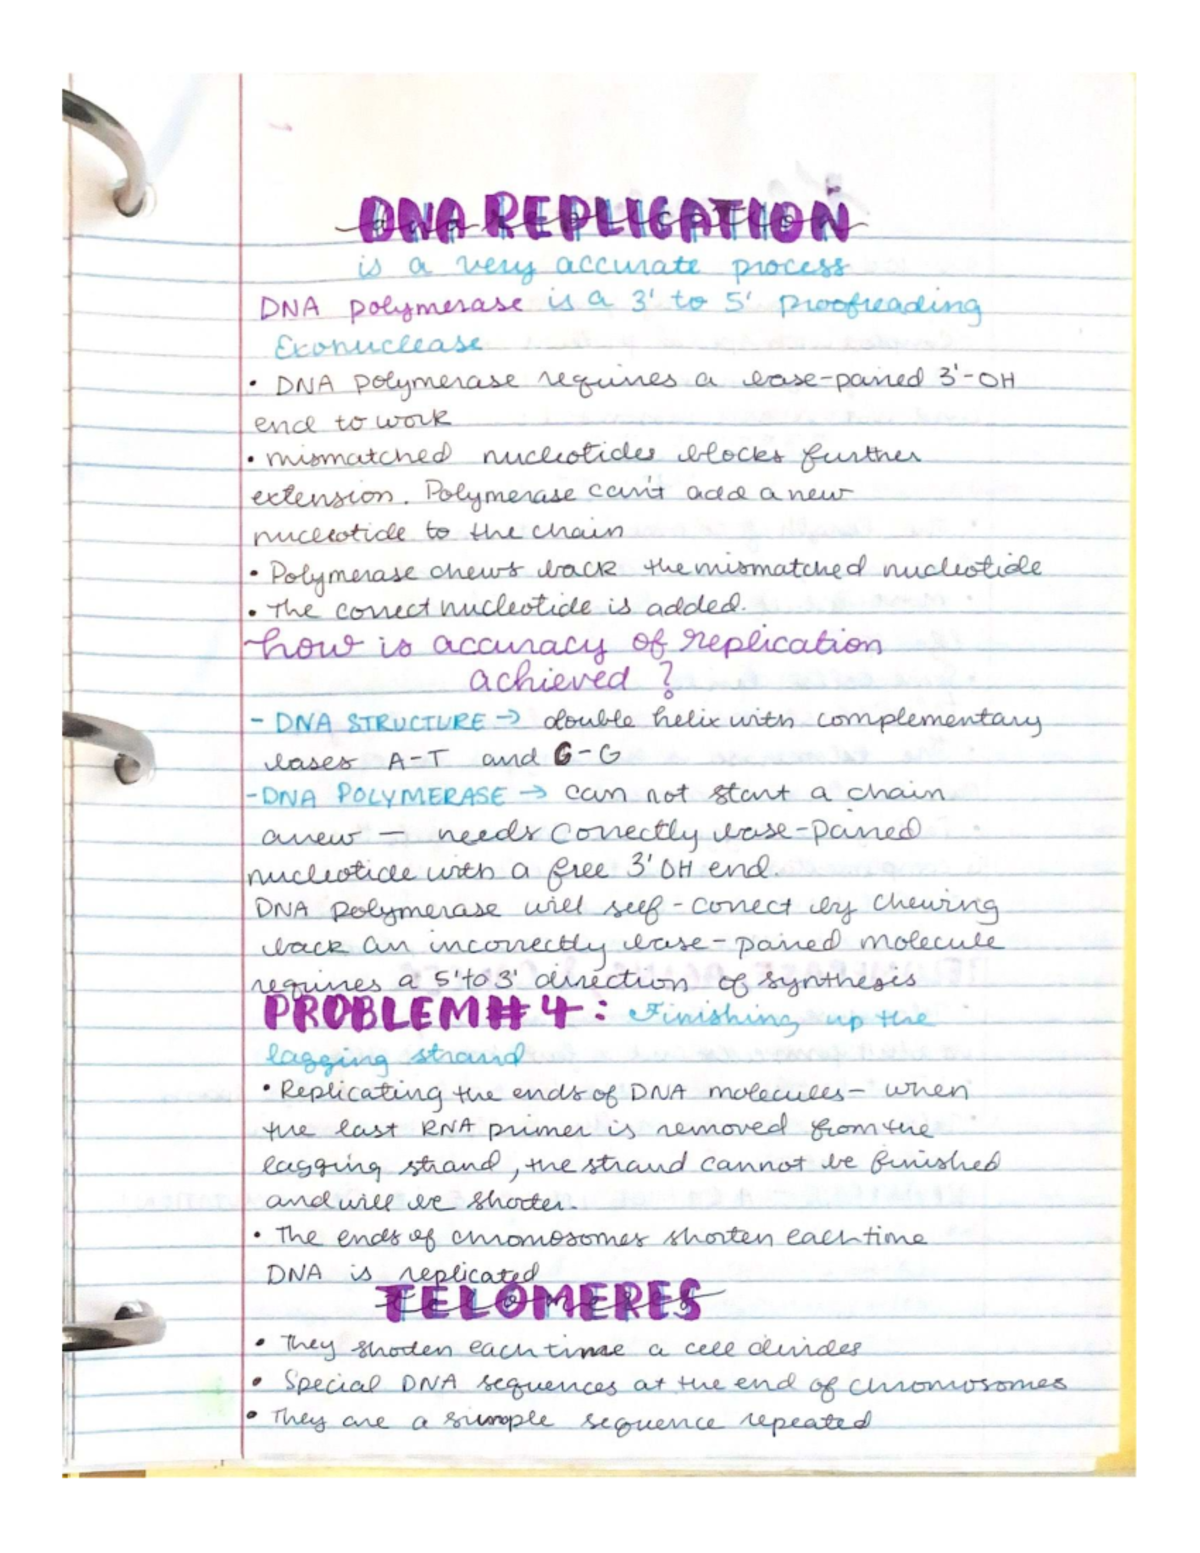 DNA REPLICATION
is a very accurate process
DNA polymerase is a 3' to 5' proofreading
Exonuclease
• DNA polymerase requires a base-paired 3'-OH
end to work
• mismatched nucleotides blocks further
extension. Polymerase can't add a new
nucleotide to the chain
• Polymerase chews back the mismatched nucleotide
• The correct nucleotide is added.
how is accuracy of replication
achieved ?
- DNA STRUCTURE → double helix with complementary
bases A-T and G-G
- DNA POLYMERASE → can not start a chain
anew — needs correctly base-paired
nucleotide with a free 3' OH end.
DNA polymerase will self-correct by chewing
back an incorrectly base-paired molecule
requires a 5' to 3' direction of synthesis
PROBLEM # 4 : Finishing up the
lagging strand
• Replicating the ends of DNA molecules — when
the last RNA primer is removed from the
lagging strand, the strand cannot be finished
and will be shorter.
• The ends of chromosomes shorten each time
DNA is replicated
TELOMERES
• They shorten each time a cell divides
• Special DNA sequences at the end of chromosomes
• They are a simple sequence repeated